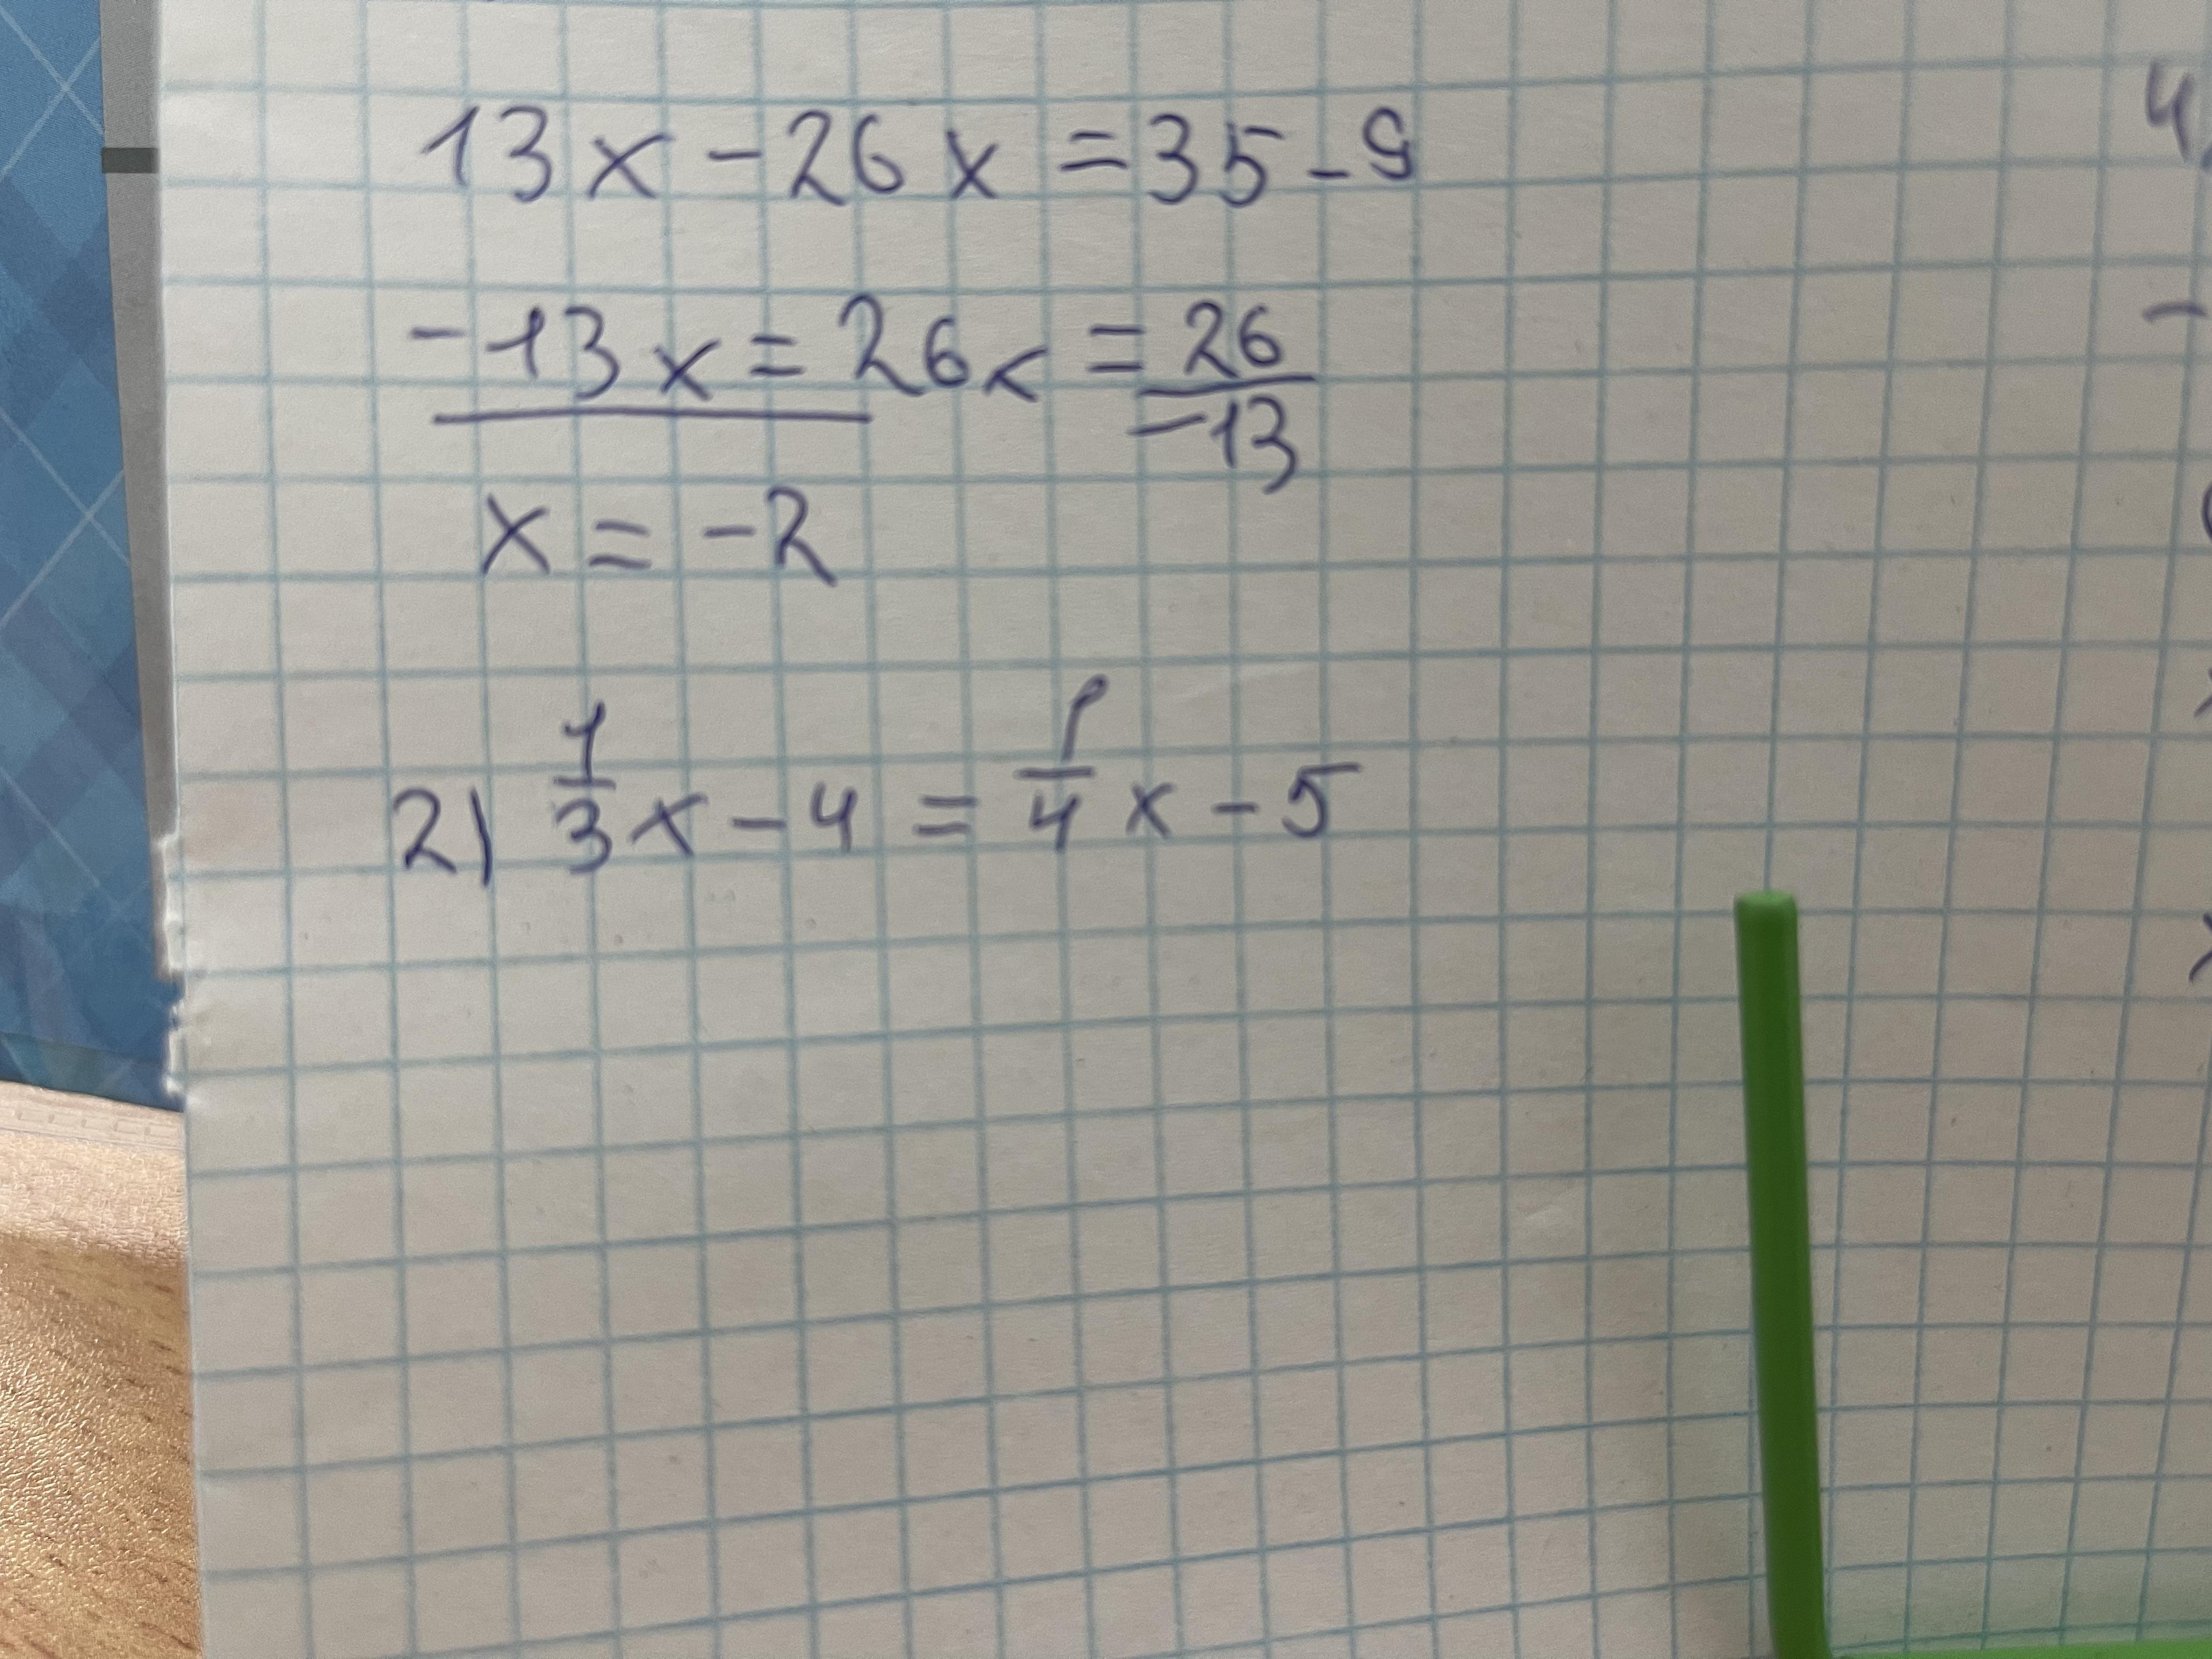 13x - 26x = 35 - 9
-13x = 26 x = 26/-13
x = -2
2) 1/3 x - 4 = 1/4 x - 5